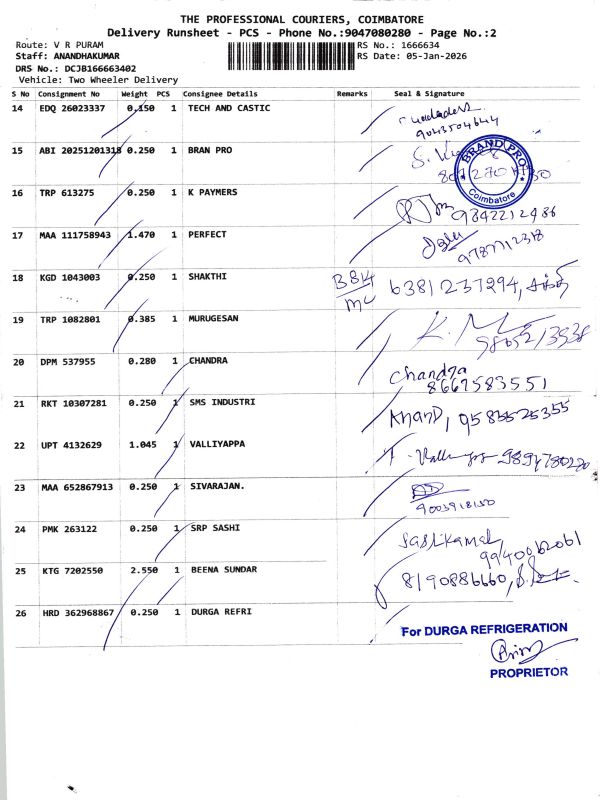 THE PROFESSIONAL COURIERS, COIMBATORE
Delivery Runsheet - PCS - Phone No.:9047080280 - Page No.:2
Route: V R PURAM
RS No.: 1666634
Staff: ANANDHAKUMAR
RS Date: 05-Jan-2026
DRS No.: DCJB166663402
Vehicle: Two Wheeler Delivery
S No Consignment No Weight PCS Consignee Details Remarks Seal & Signature
14 EDQ 26023337 0.150 1 TECH AND CASTIC
9043504644
15 ABI 20251201318 0.250 1 BRAN PRO
BRAND PRO
Coimbatore
16 TRP 613275 0.250 1 K PAYMERS
9342212436
17 MAA 111758943 1.470 1 PERFECT
9787712318
18 KGD 1043003 0.250 1 SHAKTHI 6381237294,
19 TRP 1082801 0.385 1 MURUGESAN
20 DPM 537955 0.280 1 CHANDRA
Chandra
8667583551
21 RKT 10307281 0.250 1 SMS INDUSTRI
Anand, 9583525355
22 UPT 4132629 1.045 1 VALLIYAPPA
23 MAA 652867913 0.250 1 SIVARAJAN.
9003918150
24 PMK 263122 0.250 1 SRP SASHI
Sasikamal
9940062061
25 KTG 7202550 2.550 1 BEENA SUNDAR
8190886660,
26 HRD 362968867 0.250 1 DURGA REFRI
For DURGA REFRIGERATION
PROPRIETOR